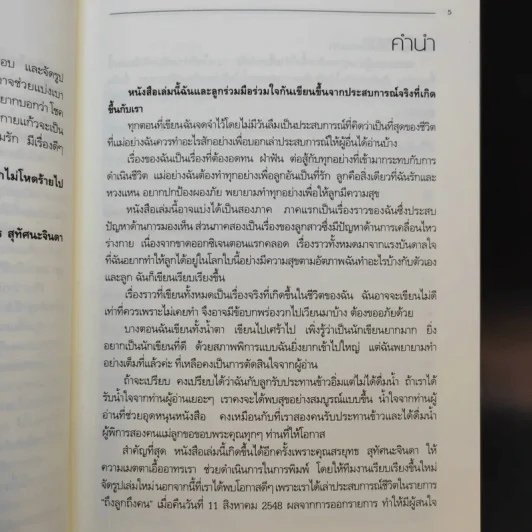 อบ และจัดรูป
าจช่วยแบ่งเบา
ยากบอกว่า โชค
กายแก้วจะเป็น
มรัก มีเรื่องดีๆ
าไม่โหดร้ายไป
ร สุทัศนะจินดา
5
คำนำ
หนังสือเล่มนี้ฉันและลูกร่วมมือร่วมใจกันเขียนขึ้นจากประสบการณ์จริงที่เกิด
ขึ้นกับเรา
ทุกตอนที่เขียนฉันจดจำไว้โดยไม่มีวันลืมเป็นประสบการณ์ที่คิดว่าเป็นที่สุดของชีวิต
ที่แม่อย่างฉันควรทำอะไรสักอย่างเพื่อบอกเล่าประสบการณ์ให้ผู้อื่นได้อ่านบ้าง
เรื่องของฉันเป็นเรื่องที่ต้องอดทน ฝ่าฟัน ต่อสู้กับทุกอย่างที่เข้ามากระทบกับการ
ดำเนินชีวิต แม่อย่างฉันต้องทำทุกอย่างเพื่อลูกอันเป็นที่รัก ลูกคือสิ่งเดียวที่ฉันรักและ
หวงแหน อยากปกป้องผองภัย พยายามทำทุกอย่างเพื่อให้ลูกมีความสุข
หนังสือเล่มนี้อาจแบ่งได้เป็นสองภาค ภาคแรกเป็นเรื่องราวของฉันซึ่งประสบ
ปัญหาด้านการมองเห็น ส่วนภาคสองเป็นเรื่องของลูกสาวซึ่งมีปัญหาด้านการเคลื่อนไหว
ร่างกาย เนื่องจากขาดออกซิเจนตอนแรกคลอด เรื่องราวทั้งหมดมาจากแรงบันดาลใจ
ที่ฉันอยากทำให้ลูกได้อยู่ในโลกใบนี้อย่างมีความสุขตามอัตภาพฉันทำอะไรบ้างกับตัวเอง
และลูก ฉันก็เขียนเรียบเรียงขึ้น
เรื่องราวที่เขียนทั้งหมดเป็นเรื่องจริงที่เกิดขึ้นในชีวิตของฉัน ฉันอาจจะเขียนไม่ดี
เท่าที่ควรเพราะไม่เคยทำ จึงอาจมีข้อบกพร่องวกไปเวียนมาบ้าง ต้องขออภัยด้วย
บางตอนฉันเขียนทั้งน้ำตา เขียนไปเศร้าไป เพิ่งรู้ว่าเป็นนักเขียนยากมาก ยิ่ง
อยากเป็นนักเขียนที่ดี ด้วยสภาพพิการแบบฉันยิ่งยากเข้าไปใหญ่ แต่ฉันพยายามทำ
อย่างเต็มที่แล้วค่ะ ที่เหลือคงเป็นการตัดสินใจจากผู้อ่าน
ถ้าจะเปรียบ คงเปรียบได้ว่าฉันกับลูกรับประทานข้าวอิ่มแต่ไม่ได้ดื่มน้ำ ถ้าเราได้
รับน้ำใจจากท่านผู้อ่านเยอะๆ เราคงจะได้พบสุขอย่างสมบูรณ์แบบขึ้น น้ำใจจากท่านผู้
อ่านที่ช่วยอุดหนุนหนังสือ คงเหมือนกับที่เราสองคนรับประทานข้าวและได้ดื่มน้ำ
ผู้พิการสองคนแม่ลูกขอขอบพระคุณทุกๆ ท่านที่ให้โอกาส
สำคัญที่สุด หนังสือเล่มนี้เกิดขึ้นได้อีกครั้งเพราะคุณสรยุทธ สุทัศนะจินดา ให้
ความเมตตาเอื้ออาทรเรา ช่วยดำเนินการในการพิมพ์ โดยให้ทีมงานเรียบเรียงขึ้นใหม่
จัดรูปเล่มใหม่นอกจากนี้ที่เราได้พบโอกาสดีๆ เพราะเราได้เล่าประสบการณ์ชีวิตในรายการ
"ถึงลูกถึงคน" เมื่อคืนวันที่ 11 สิงหาคม 2548 ผลจากการออกรายการ ทำให้มีผู้สนใจ